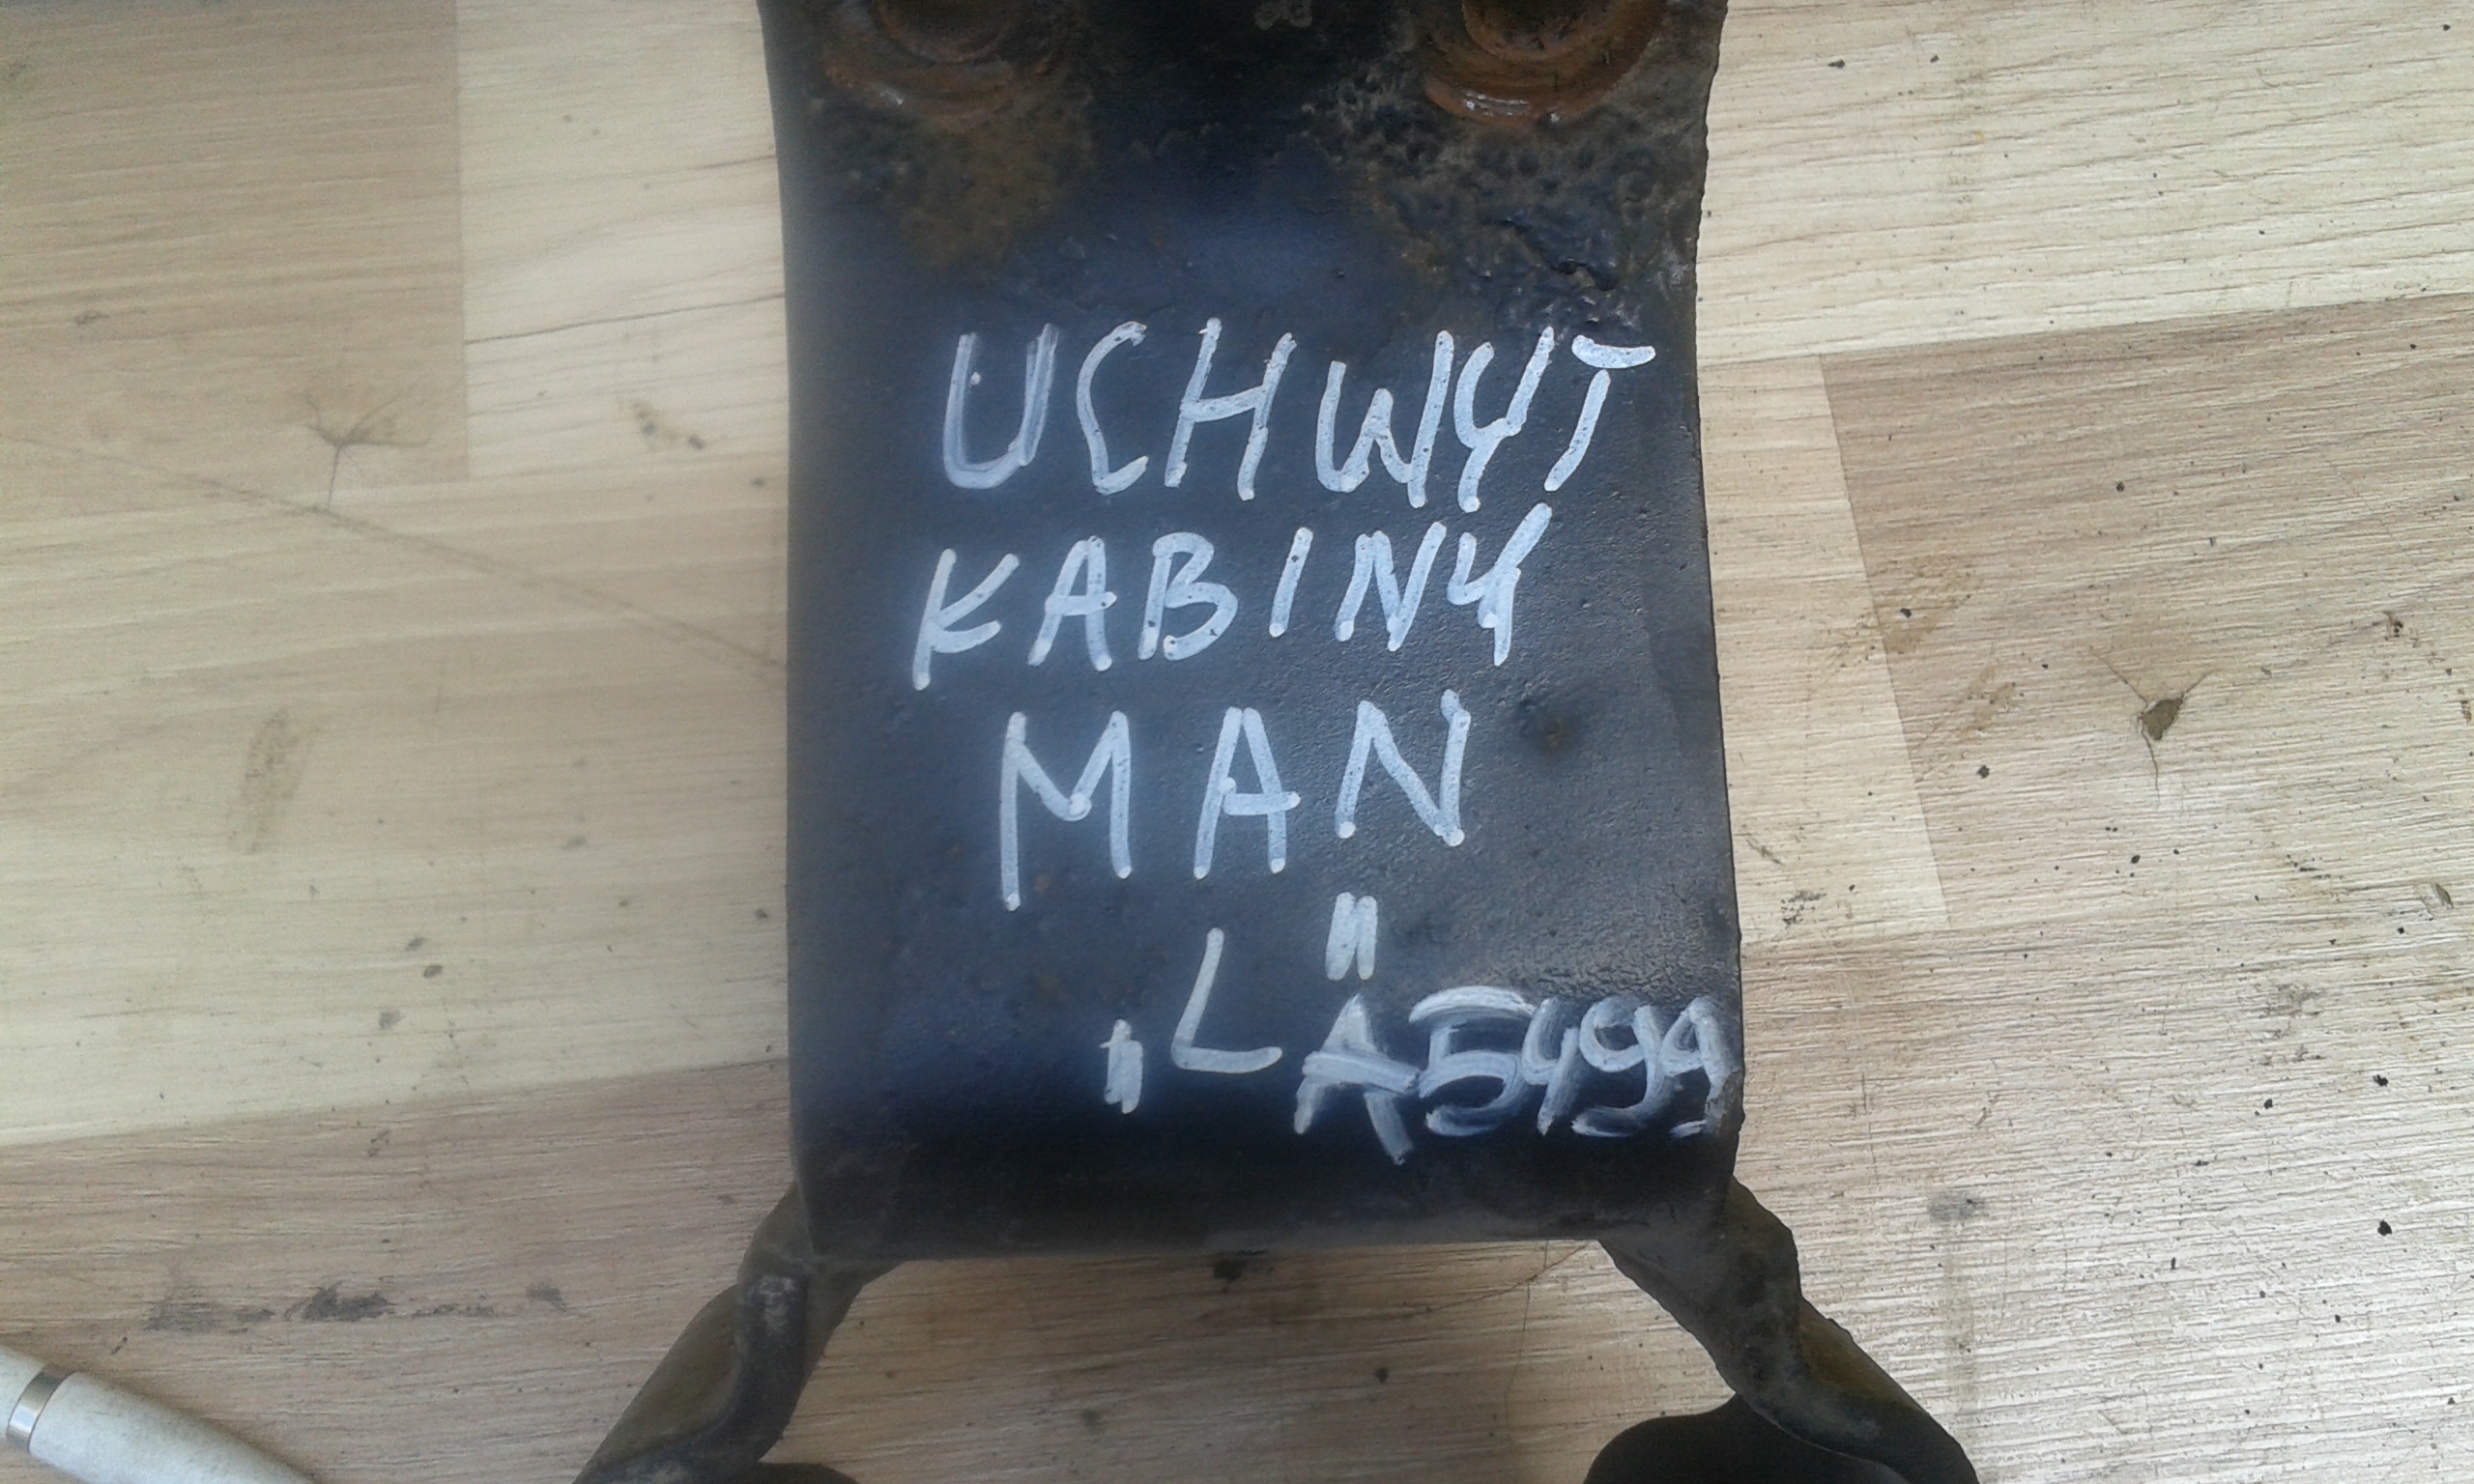 UCHWYT
KABINY
MAN
„L"
A5499